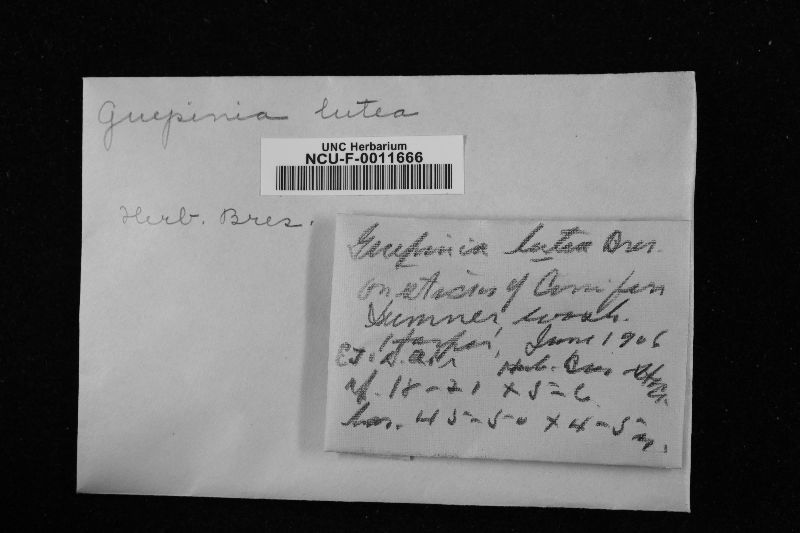 Guepinia lutea
UNC Herbarium
NCU-F-0011666
Herb. Bres.
Guepinia lutea Bres.
on sticks of Conifer
Sumner wash.
June 1906
Herb. Bres
18-21 x 5-6
45-50 x 4-5